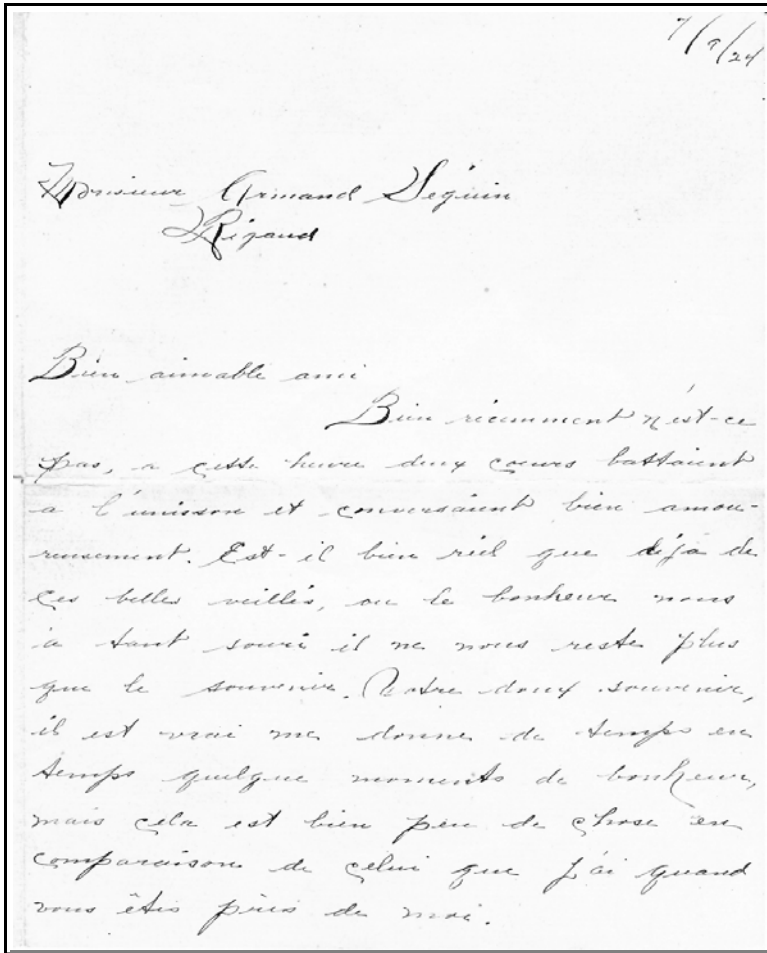 7/9/24
Monsieur Armand Séguin
Rigaud
Bien aimable ami
Bien récemment n'est-ce
pas, a cette heure deux coeurs battaient
a l'unisson et conversaient bien amou-
reusement. Est-il bien réel que déjà de
ces belles veillés, ou le bonheur nous
a tant souri il ne nous reste plus
que le souvenir. Votre doux souvenir,
il est vrai me donne de temps en
temps quelque moments de bonheur,
mais cela est bien peu de chose en
comparaison de celui que j'ai quand
vous êtes près de moi.